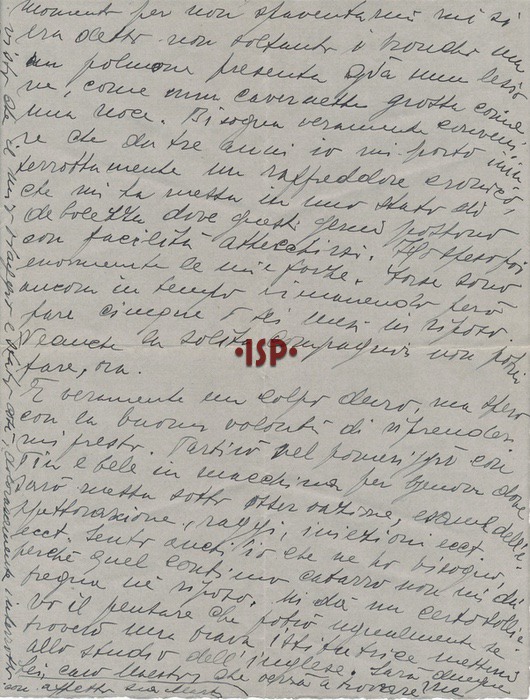 momento per non spaventarmi mi si
era detto non soltanto i bronchi ma
un polmone presenta già una lesio
ne, come una cavernetta grossa come
una noce. Bisogna veramente conveni
re che da tre anni io mi porto inin
terrottamente un raffreddore cronico,
che mi ha messa in uno stato di
debolezza dove questi germi possono
con facilità attecchirsi. Ho speso poi
enormemente le mie forze. Forse sono
ancora in tempo rimanendo però
fare cinque o sei mesi di riposo.
Neanche la solita campagna non potrò
fare, ora.
·ISP·
È veramente un colpo duro, ma spero
con la buona volontà di riprender
mi presto. Partirò nel pomeriggio con
in macchina per Genova dove
sarò messa sotto osservazione, esame dell'
espettorazione, raggi, iniezioni ecct.
ecct. Sento anch'io che ne ho bisogno,
perché quel continuo catarro non mi dà
tregua nè riposo. Mi dà un certo solli-
vo il pensare che potrò ugualmente se
troverò una brava istitutrice mettermi
allo studio dell'inglese. Sarà dunque
Lei, caro Maestro, che verrà a trovare
con affetto